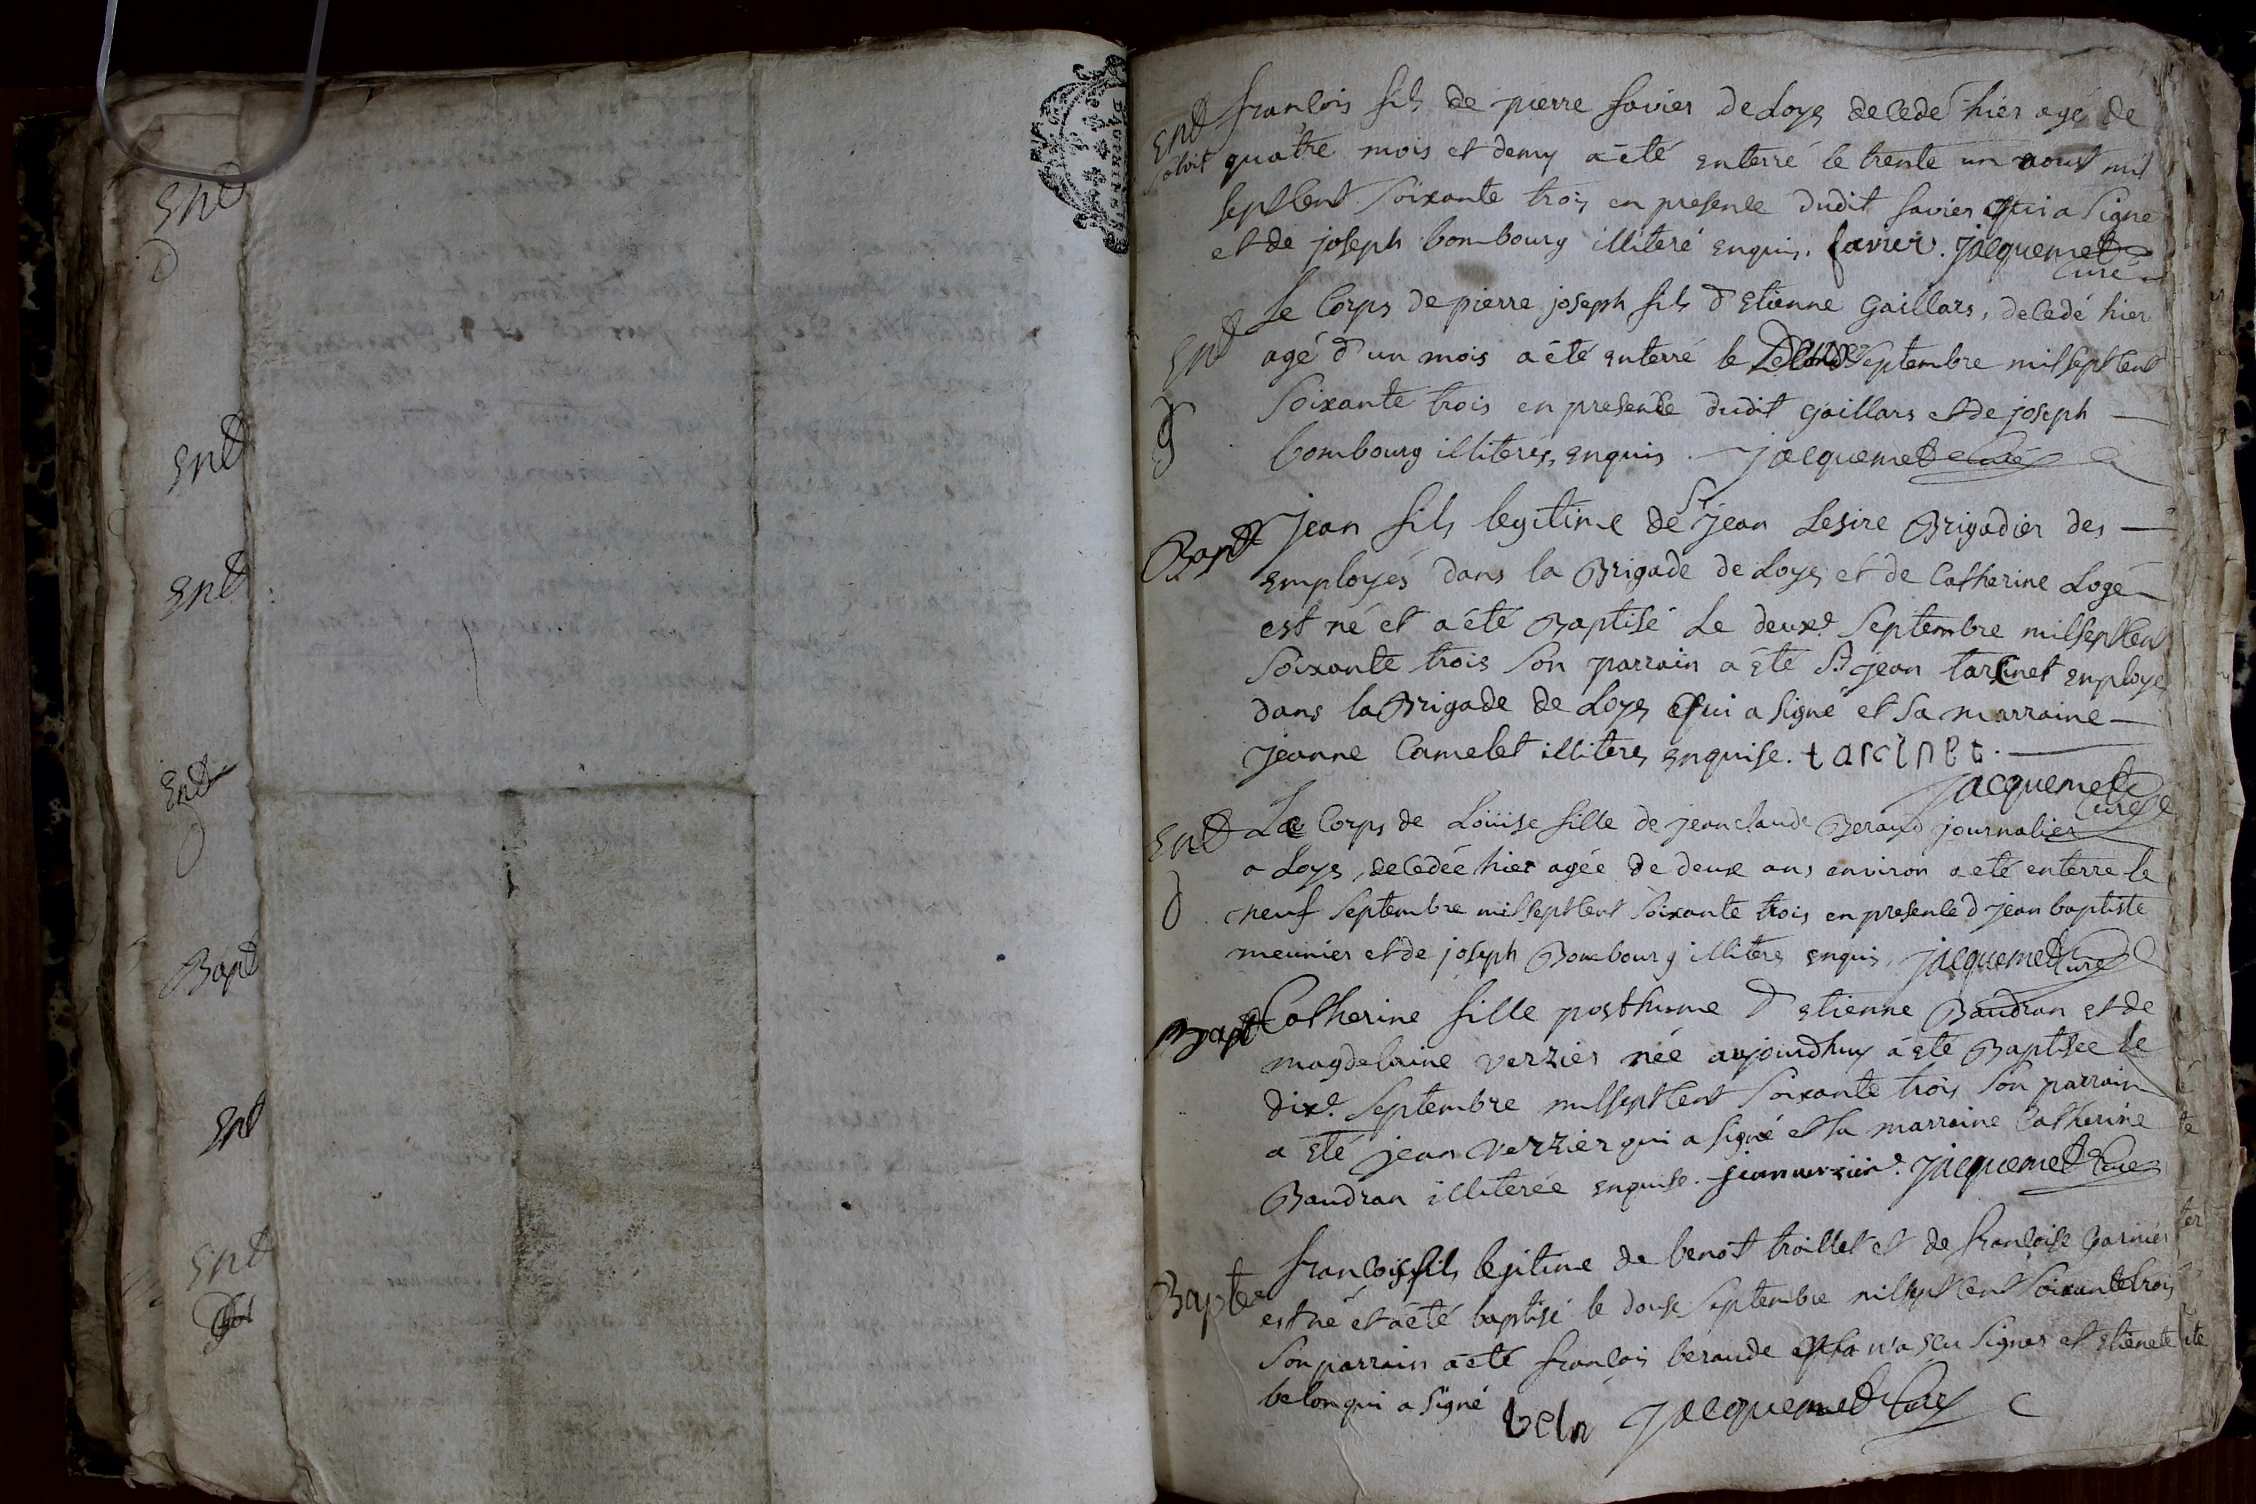 Ent
d
Ent
Ent
Ent
d
Bapt
Ent
Ent
Ent
françois fils de pierre favier de Loyes decedé hier agé de
quatre mois et demy a été enterré le trente un aoust mil
septcent soixante trois en presence dudit favier qui a signé
et de joseph bombourg illiteré enquis. favier. jacquemet
curé
Ent
g
Le Corps de pierre joseph fils d'Etienne gaillars, decedé hier
agé d'un mois a été enterré le septembre mil septcent
soixante trois en presence dudit gaillars et de joseph
bombourg illiterés, enquis. jacquemet curé
Bapt
jean fils legitime de Sr jean Lesire Brigadier des
employés dans la Brigade de Loyes et de Catherine Logé
est né et a été Baptisé Le deuxe. septembre mil septcent
soixante trois son parrain a été Sr. jean tarcinet employé
dans la Brigade de Loyes qui a signé et sa marraine
jeanne Camelet illitere, enquise. tarcinet.
jacquemet
curé
Ent
d
Le Corps de Loüise fille de jean claude Beraud journalier
a Loyes, decedée hier agée de deux ans environ a eté enterre le
neuf septembre mil septcent soixante trois en presence d jean baptiste
meunier et de joseph Bombourg illitere enquis, jacquemet curé
Bapt
Catherine fille posthume d'etienne Baudran et de
magdelaine verzier née aujourdhuy a été Baptisée le
dixe. septembre mil septcent soixante trois son parrain
a été jean verzier qui a signé et sa marraine Catherine
Baudran illiterée enquise. jean verzier. jacquemet curé
Bapte
françois fils legitime de benoit traillet et de françoise garnier
est né et a été baptisé le douse septembre mil septcent soixante trois
son parrain a été françois beraude n'a scu signer et etienete
belon qui a signé beln jacquemet curé